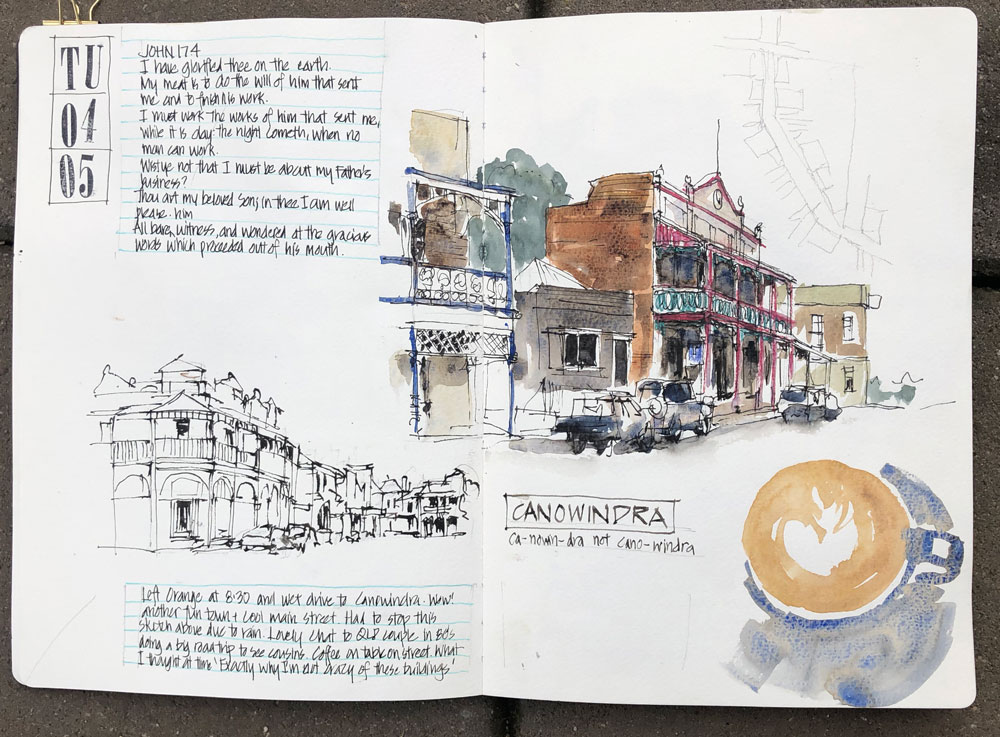 TU
04
05
JOHN 17 4
I have glorified thee on the earth.
My meat is to do the will of him that sent
me and to finish his work.
I must work the works of him that sent me,
while it is day: the night cometh, when no
man can work.
Wist ye not that I must be about my Father's
business?
Thou art my beloved Son; in thee I am well
please. him
All bare, witness, and wondered at the gracious
words which proceeded out of his mouth.
Left Orange at 8:30 and wet drive to Canowindra. Wow!
another fun town + cool main street. Had to stop this
sketch above due to rain. Lovely chat to QLD couple in 80's
doing a big road trip to see cousins. Coffee on table on street. What
I thought at time 'Exactly why I'm not crazy of these buildings'
CANOWINDRA
ca-noun-dra not cano-windra